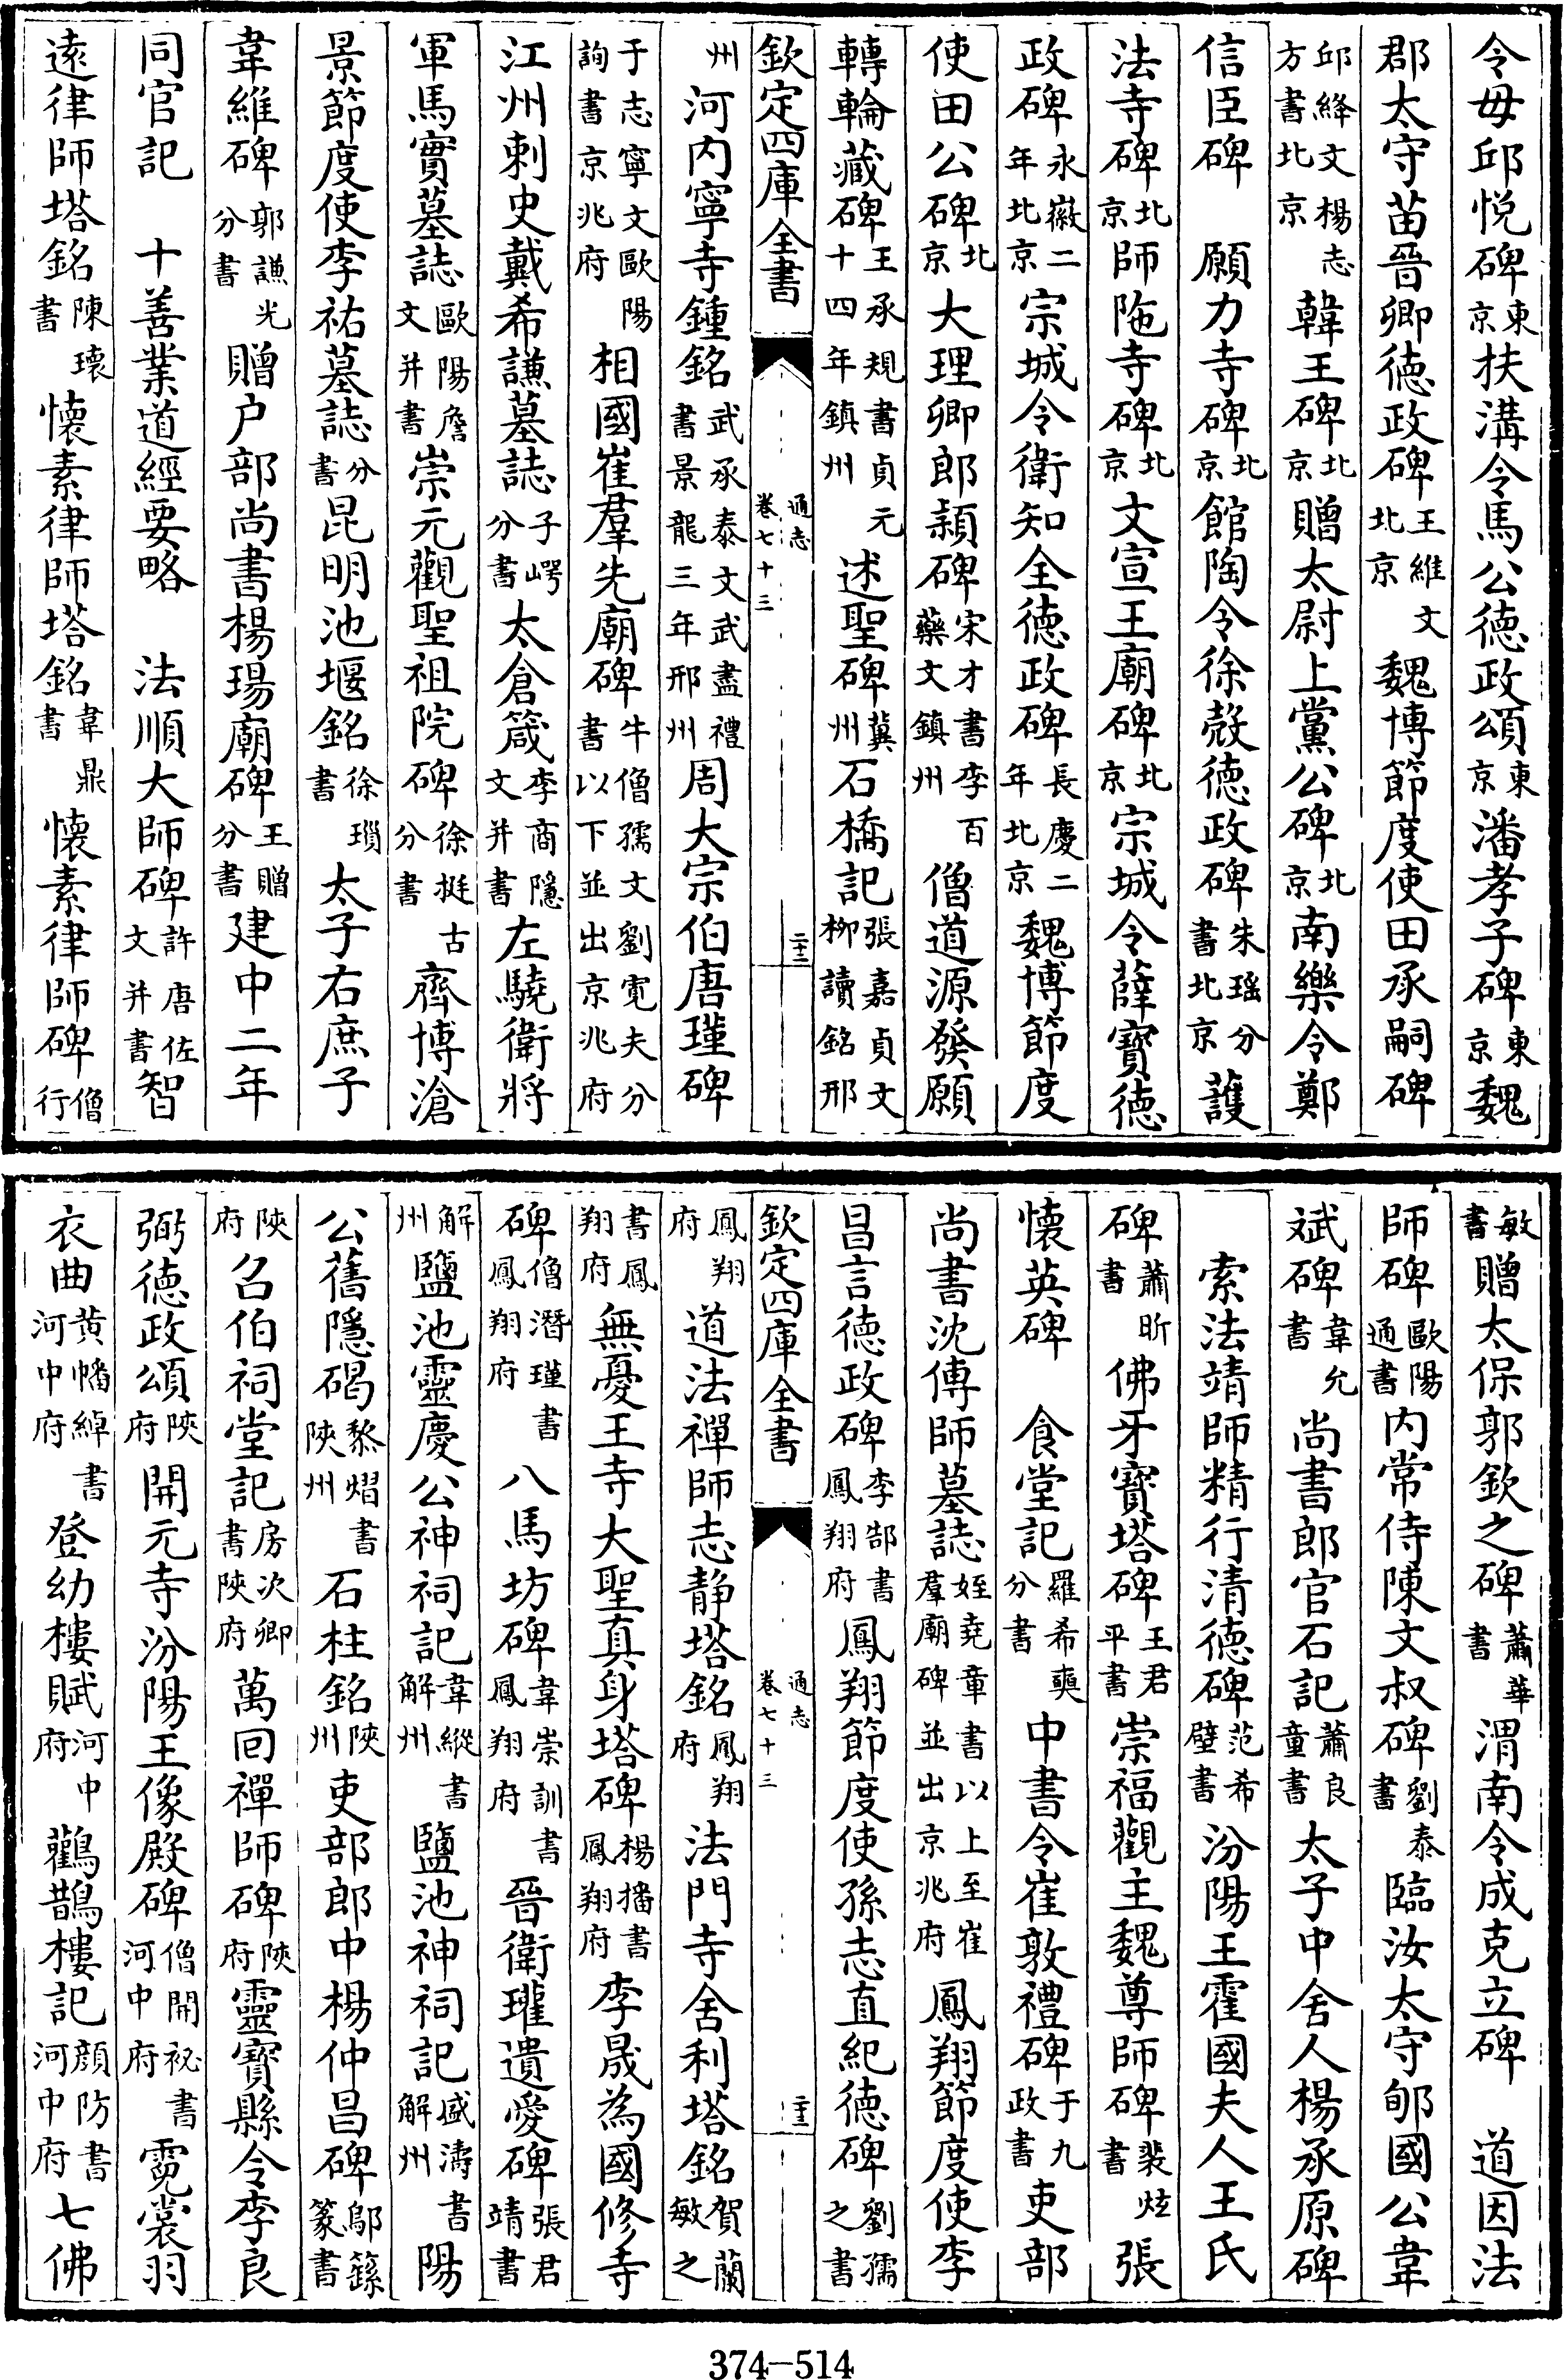 令毋邱悅碑東京扶溝令馬公德政頌東京潘孝子碑東京魏
郡太守苗晉卿德政碑王維文北京魏博節度使田承嗣碑
邱絳文楊志方書北京韓王碑北京贈太尉上黨公碑北京南樂令鄭
信臣碑 願力寺碑北京館陶令徐殼德政碑朱瑶分書北京護
法寺碑北京師陁寺碑北京文宣王廟碑北京宗城令薛寶德
政碑永徽二年北京宗城令衛知全德政碑長慶二年北京魏博節度
使田公碑北京大理卿郎頴碑宋才書李百藥文鎮州僧道源發願
轉輪藏碑王承規書貞元十四年鎮州述聖碑冀州石橋記張嘉貞文柳讀銘邢
欽定四庫全書 通志卷七十三 二十二
州河內寧寺鍾銘武承泰文武盡禮書景龍三年邢州周大宗伯唐瑾碑
于志寧文歐陽詢書京兆府相國崔羣先廟碑牛僧孺文劉寛夫分書以下並出京兆府
江州刺史戴希謙墓誌子崿分書太倉箴李商隱文并書左驍衛將
軍馬實墓誌歐陽詹文并書崇元觀聖祖院碑徐挺古分書齊博滄
景節度使李祐墓誌分書昆明池堰銘徐瑣書太子右庶子
韋維碑郭謙光分書贈户部尚書楊瑒廟碑王贈分書建中二年
同官記 十善業道經要略 法順大師碑許唐佐文并書智
遠律師塔銘陳瓌書懷素律師塔銘韋鼎書懷素律師碑僧行
敏書贈太保郭欽之碑蕭華書渭南令成克立碑 道因法
師碑歐陽通書內常侍陳文叔碑劉泰書臨汝太守郇國公韋
斌碑韋允書尚書郎官石記蕭良童書太子中舍人楊承原碑
索法靖師精行清德碑范希璧書汾陽王霍國夫人王氏
碑蕭昕書佛牙寳塔碑王君平書崇福觀主魏尊師碑裴炫書張
懷英碑 食堂記羅希奭分書中書令崔敦禮碑于九政書吏部
尚書沈傳師墓誌姪堯章書以上至崔羣廟碑並出京兆府鳳翔節度使李
昌言德政碑李郃書鳳翔府鳳翔節度使孫志直紀德碑劉孺之書
欽定四庫全書 通志卷七十三 二十三
鳳翔府道法禪師志静塔銘鳳翔府法門寺舍利塔銘賀蘭敏之
書鳳翔府無憂王寺大聖真身塔碑楊播書鳳翔府李晟為國修寺
碑僧潛瑾書鳳翔府八馬坊碑韋崇訓書鳳翔府晉衛瓘遺愛碑張君靖書
解州鹽池靈慶公神祠記韋縱書解州鹽池神祠記盛濤書解州陽
公舊隱碣黎熠書陜州石柱銘陜州吏部郎中楊仲昌碑鄔繇篆書
陜府召伯祠堂記房次卿書陜府萬回禪師碑陜府靈寶縣令李良
弼德政頌陜府開元寺汾陽王像殿碑僧開祕書河中府霓裳羽
衣曲黃幡綽書河中府登幼樓賦河中府鸛鵲樓記顔防書河中府七佛
374-514